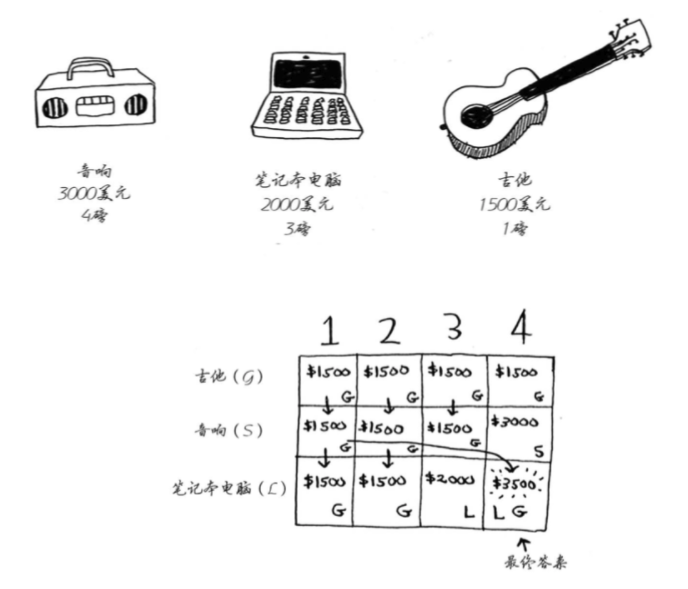 音响
3000美元
4磅
笔记本电脑
2000美元
3磅
吉他
1500美元
1磅
1 2 3 4
吉他(G) $1500 G $1500 G $1500 G $1500 G
音响(S) $1500 G $1500 G $1500 G $3000 S
笔记本电脑(L) $1500 G $1500 G $2000 L $3500 L G
最终答案